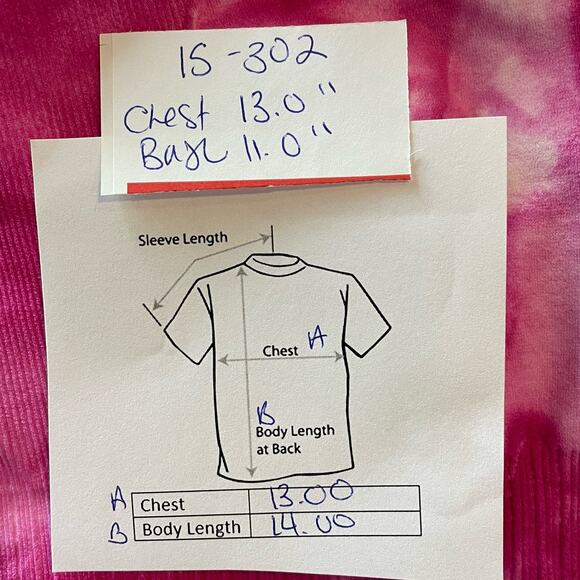 15-302
Chest 13.0"
11.0"
Sleeve Length
Chest A
B
Body Length
at Back
A Chest 13.00
B Body Length 14.00